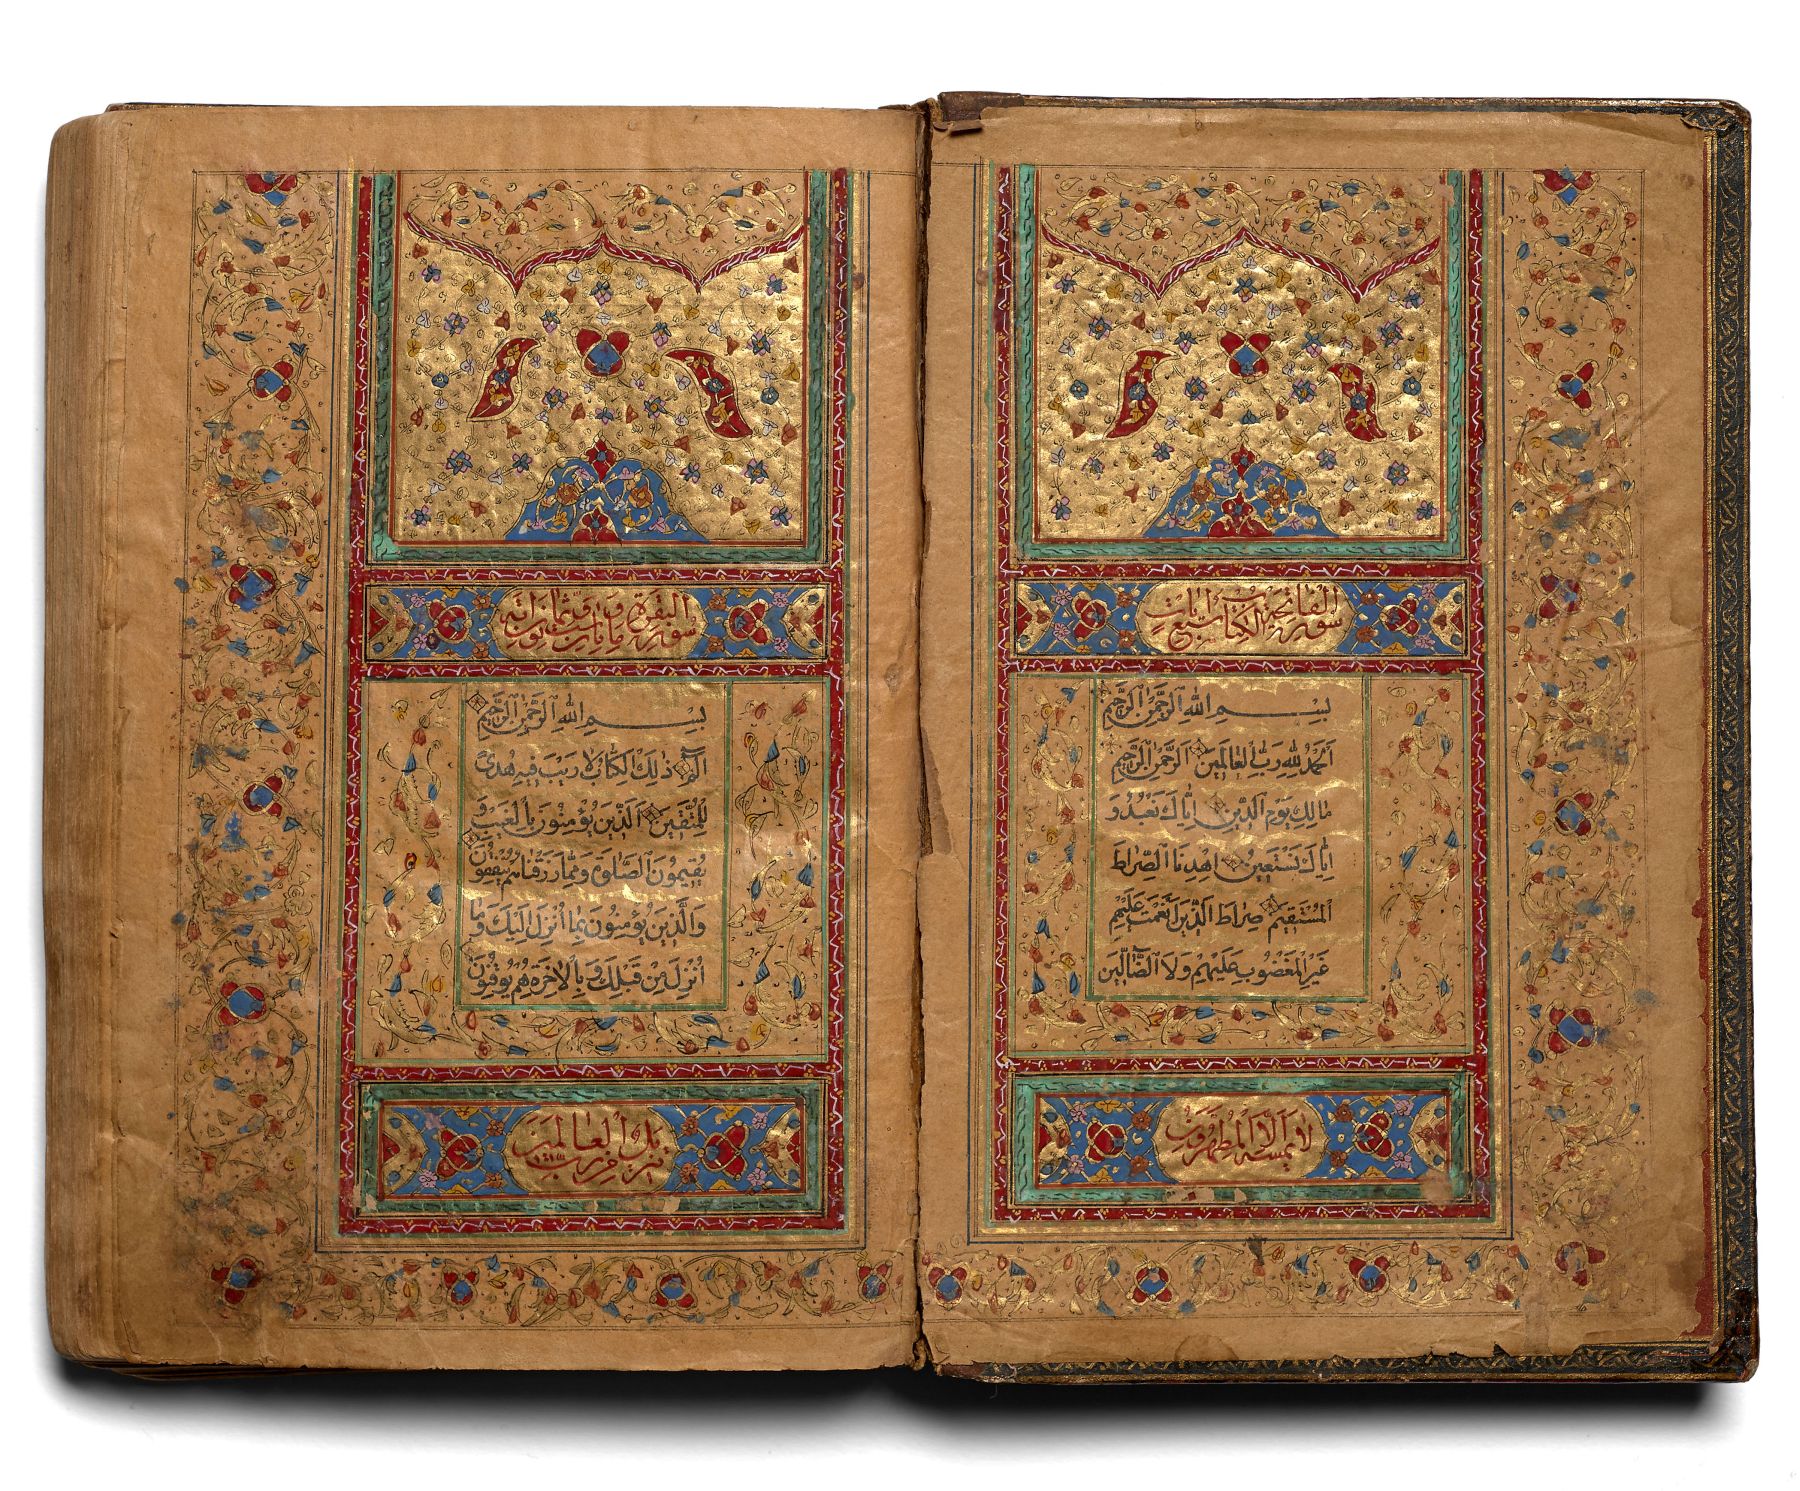 سورة الفاتحة الكتاب سبع ايات
بِسْمِ اللهِ الرَّحْمٰنِ الرَّحِيمِ
اَلْحَمْدُ لِلّٰهِ رَبِّ الْعَالَمِينَ الرَّحْمٰنِ الرَّحِيمِ
مَالِكِ يَوْمِ الدِّينِ اِيَّاكَ نَعْبُدُ وَ
اِيَّاكَ نَسْتَعِينُ اِهْدِنَا الصِّرَاطَ
الْمُسْتَقِيمَ صِرَاطَ الَّذِينَ اَنْعَمْتَ عَلَيْهِمْ
غَيْرِ الْمَغْضُوبِ عَلَيْهِمْ وَلَا الضَّالِّينَ
لا يمسه الا المطهرون
سورة البقرة مأتان و
بِسْمِ اللهِ الرَّحْمٰنِ الرَّحِيمِ
الٓمٓ ذٰلِكَ الْكِتَابُ لَا رَيْبَ فِيهِ هُدًى
لِلْمُتَّقِينَ الَّذِينَ يُؤْمِنُونَ بِالْغَيْبِ وَ
يُقِيمُونَ الصَّلٰوةَ وَمِمَّا رَزَقْنَاهُمْ يُنْفِقُونَ
وَالَّذِينَ يُؤْمِنُونَ بِمَا اُنْزِلَ اِلَيْكَ وَمَا
اُنْزِلَ مِنْ قَبْلِكَ وَبِالْاٰخِرَةِ هُمْ يُوقِنُونَ
تنزيل من رب العالمين